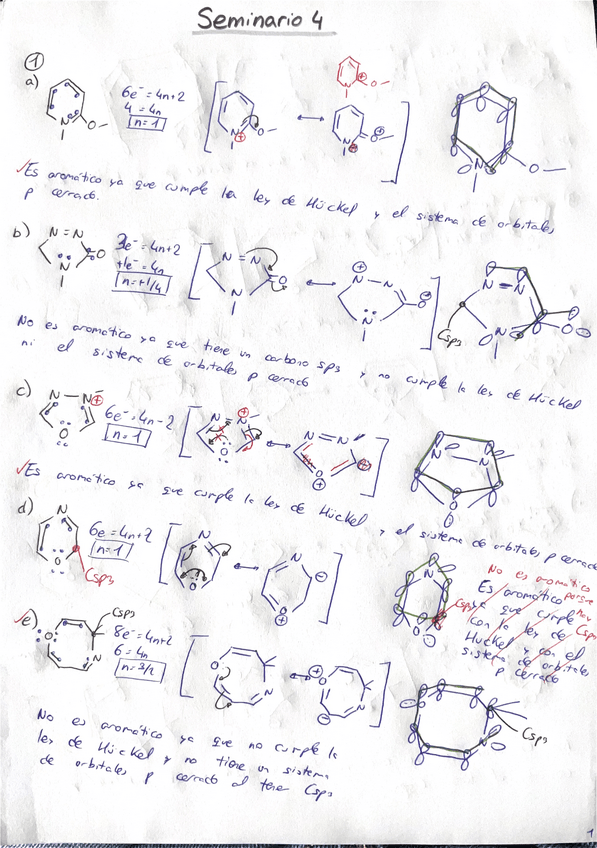 Seminario 4
1
a)
6e⁻ = 4n+2
4 = 4n
n=1
✓Es aromático ya que cumple la ley de Hückel y el sistema de orbitales
p cerrado.
b)
3e⁻ = 4n+2
+1e⁻ = 4n
n=+1/4
Csp3
No es aromático ya que tiene un carbono sp3 y no cumple la ley de Hückel
ni el sistema de orbitales p cerrado
c)
6e⁻ = 4n-2
n=1
✓Es aromático ya que cumple la ley de Hückel y el sistema de orbitales p cerrado
d)
6e = 4n+2
n=1
Csp3
No es aromático
porque
hay
Csp3
Es aromático
ya que cumple
con la ley de
Hückel y con el
sistema de orbitales
p cerrado
✓e)
Csp3
8e⁻ = 4n+2
6 = 4n
n=3/2
Csp3
No es aromático ya que no cumple la
ley de Hückel y no tiene un sistema
de orbitales p cerrado al tener Csp3
1